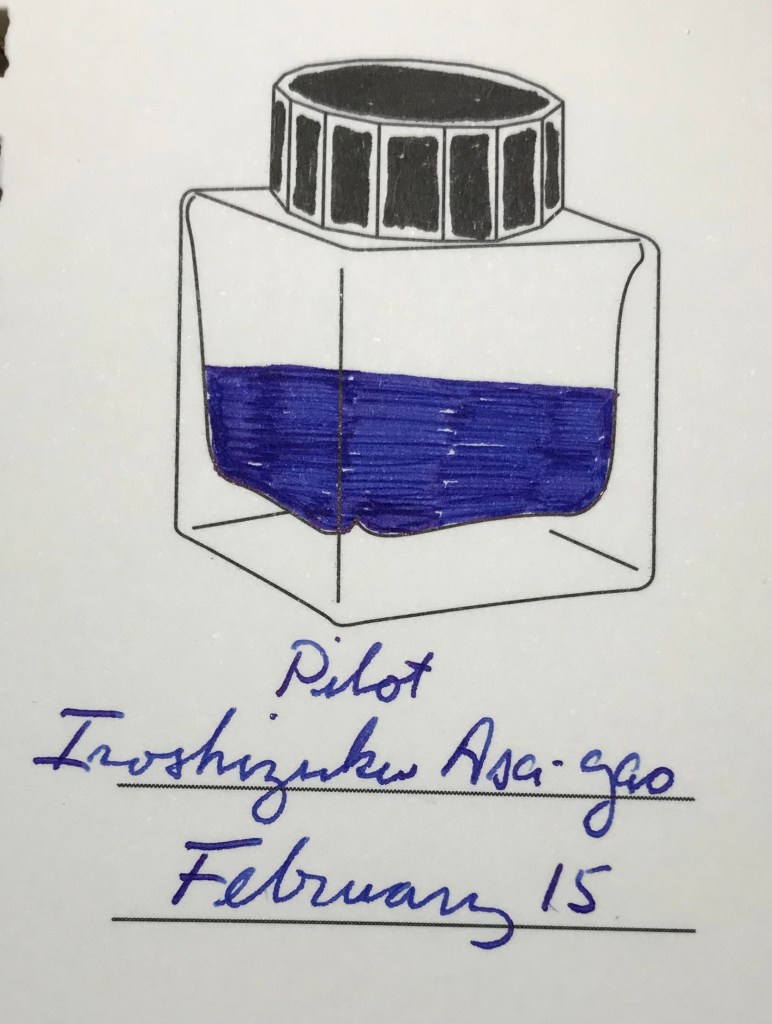 Pilot
Iroshizuku Asa-gao
February 15